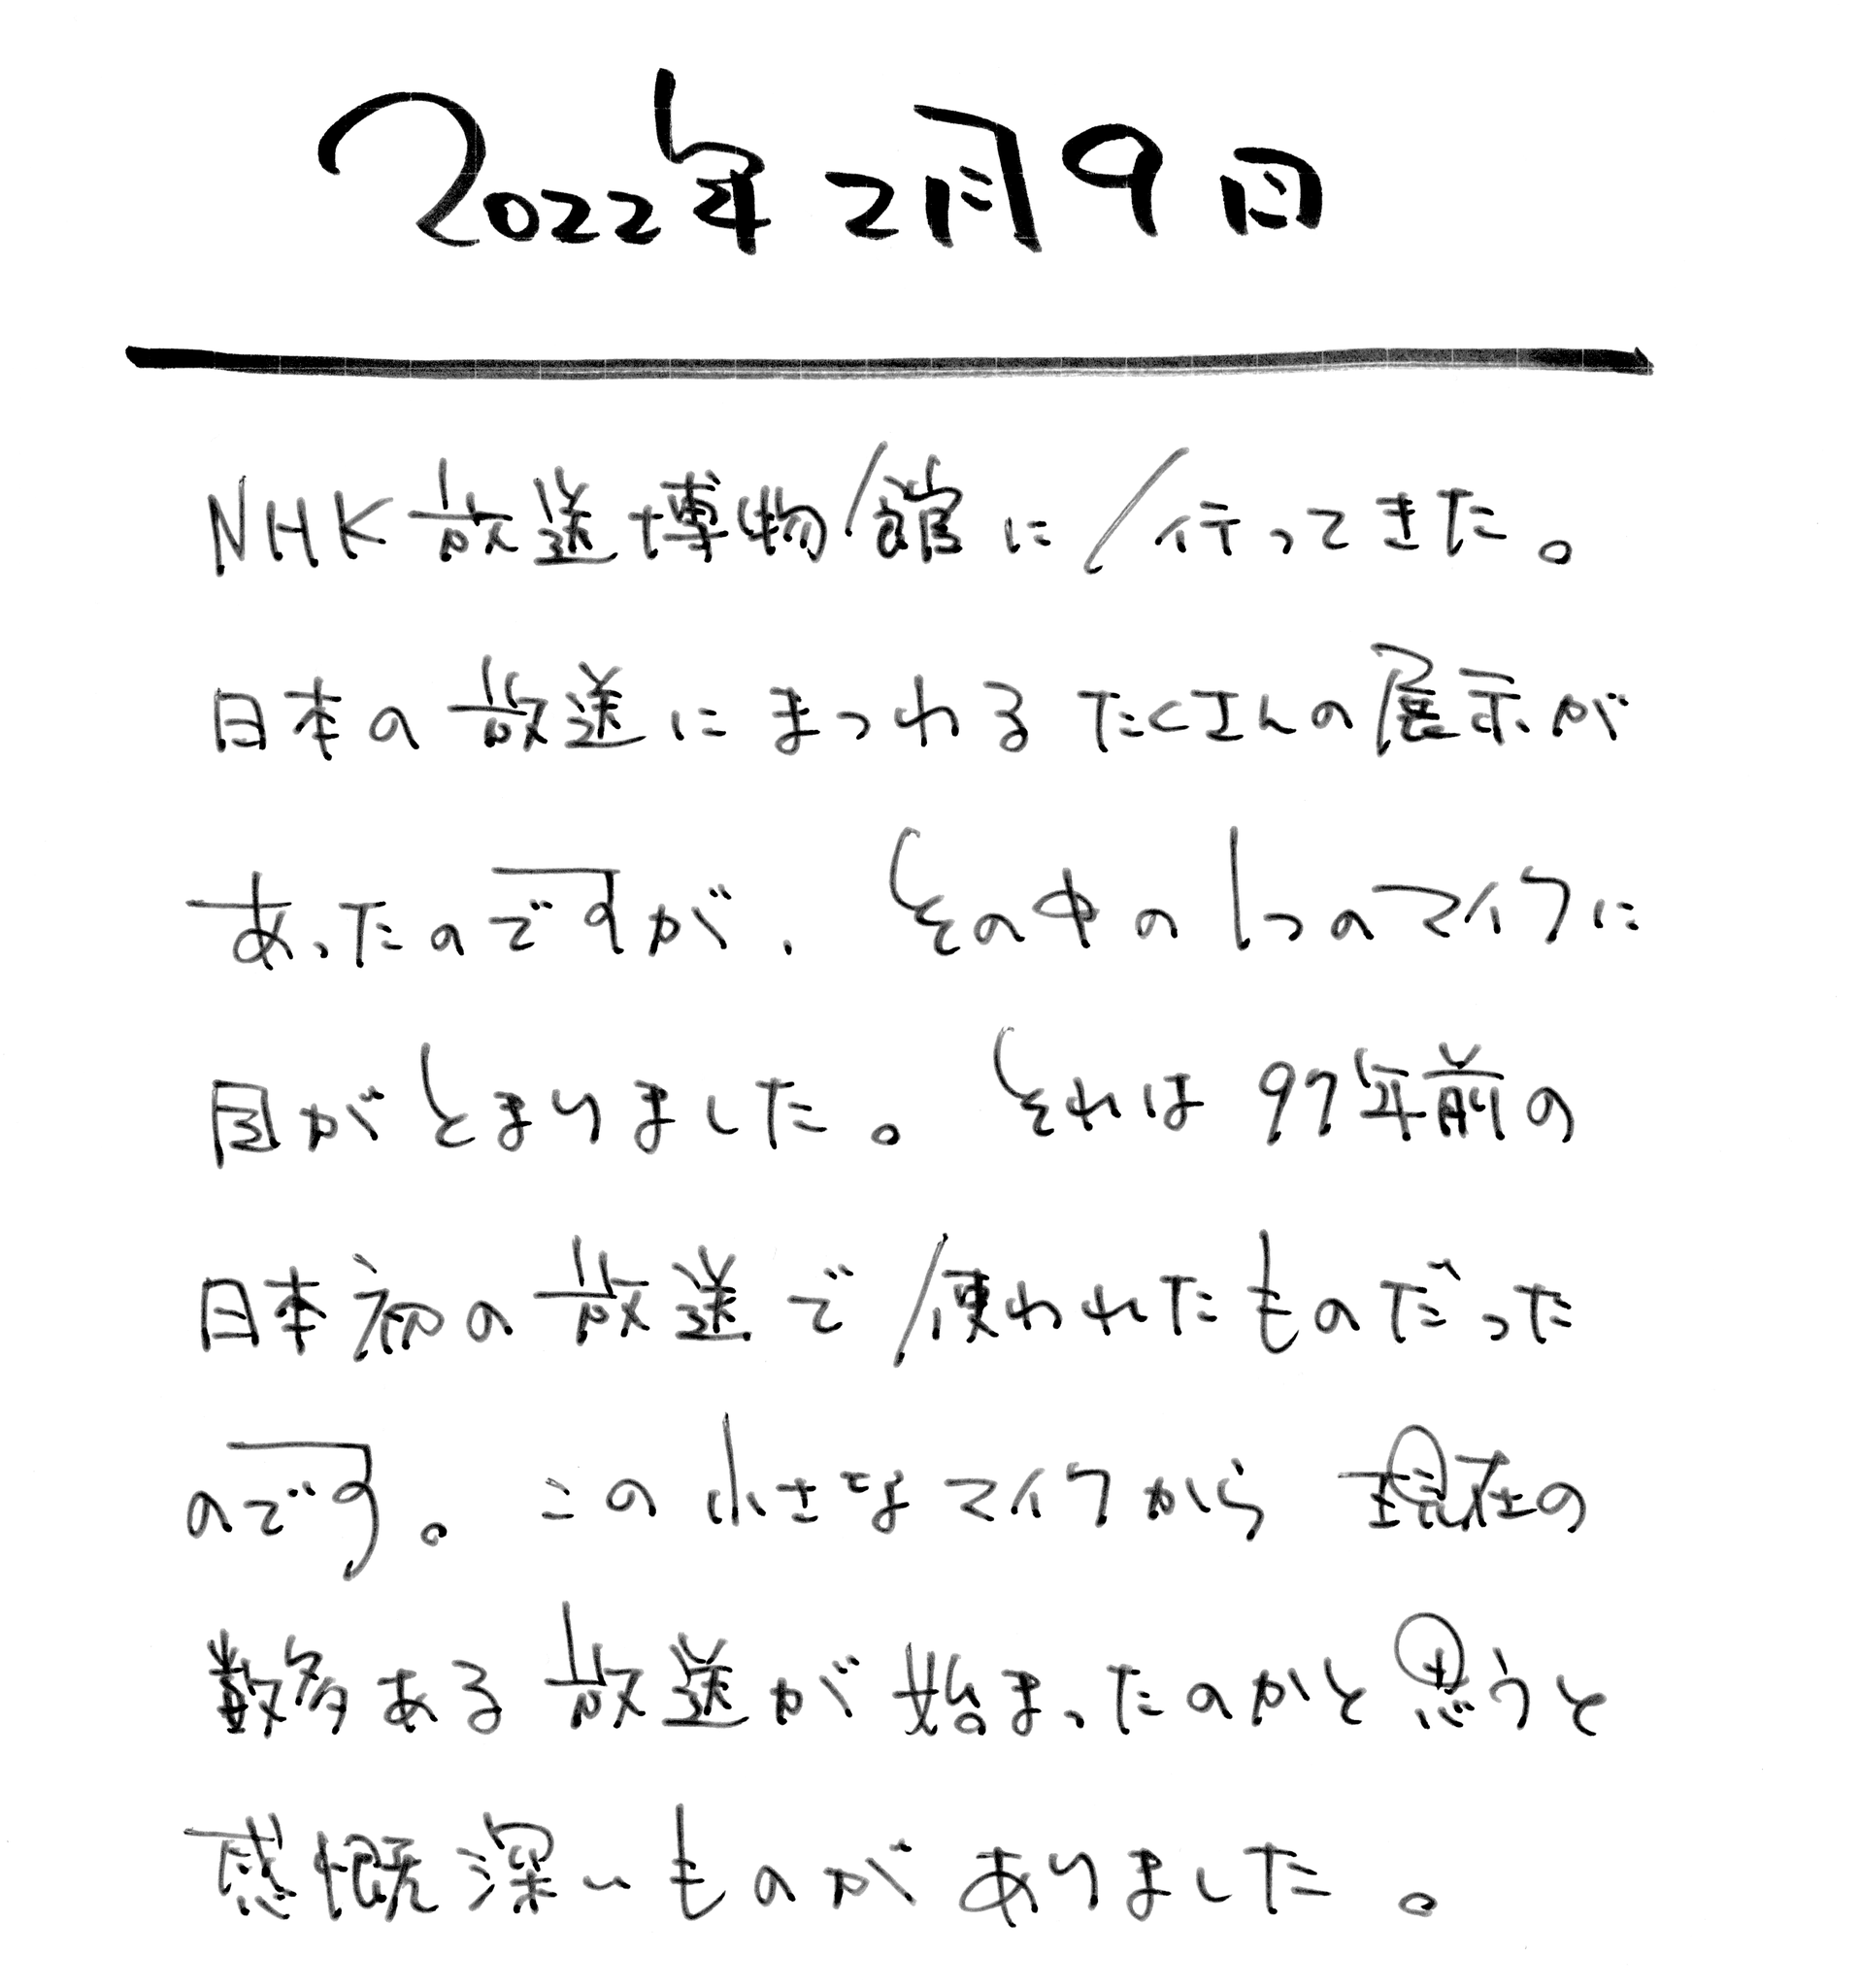 2022年2月9日
NHK放送博物館に行ってきた。
日本の放送にまつわるたくさんの展示が
あったのですが、その中の1つのマイクに
目がとまりました。それは97年前の
日本初の放送で使われたものだった
のです。この小さなマイクから現在の
数多ある放送が始まったのかと思うと
感慨深いものがありました。